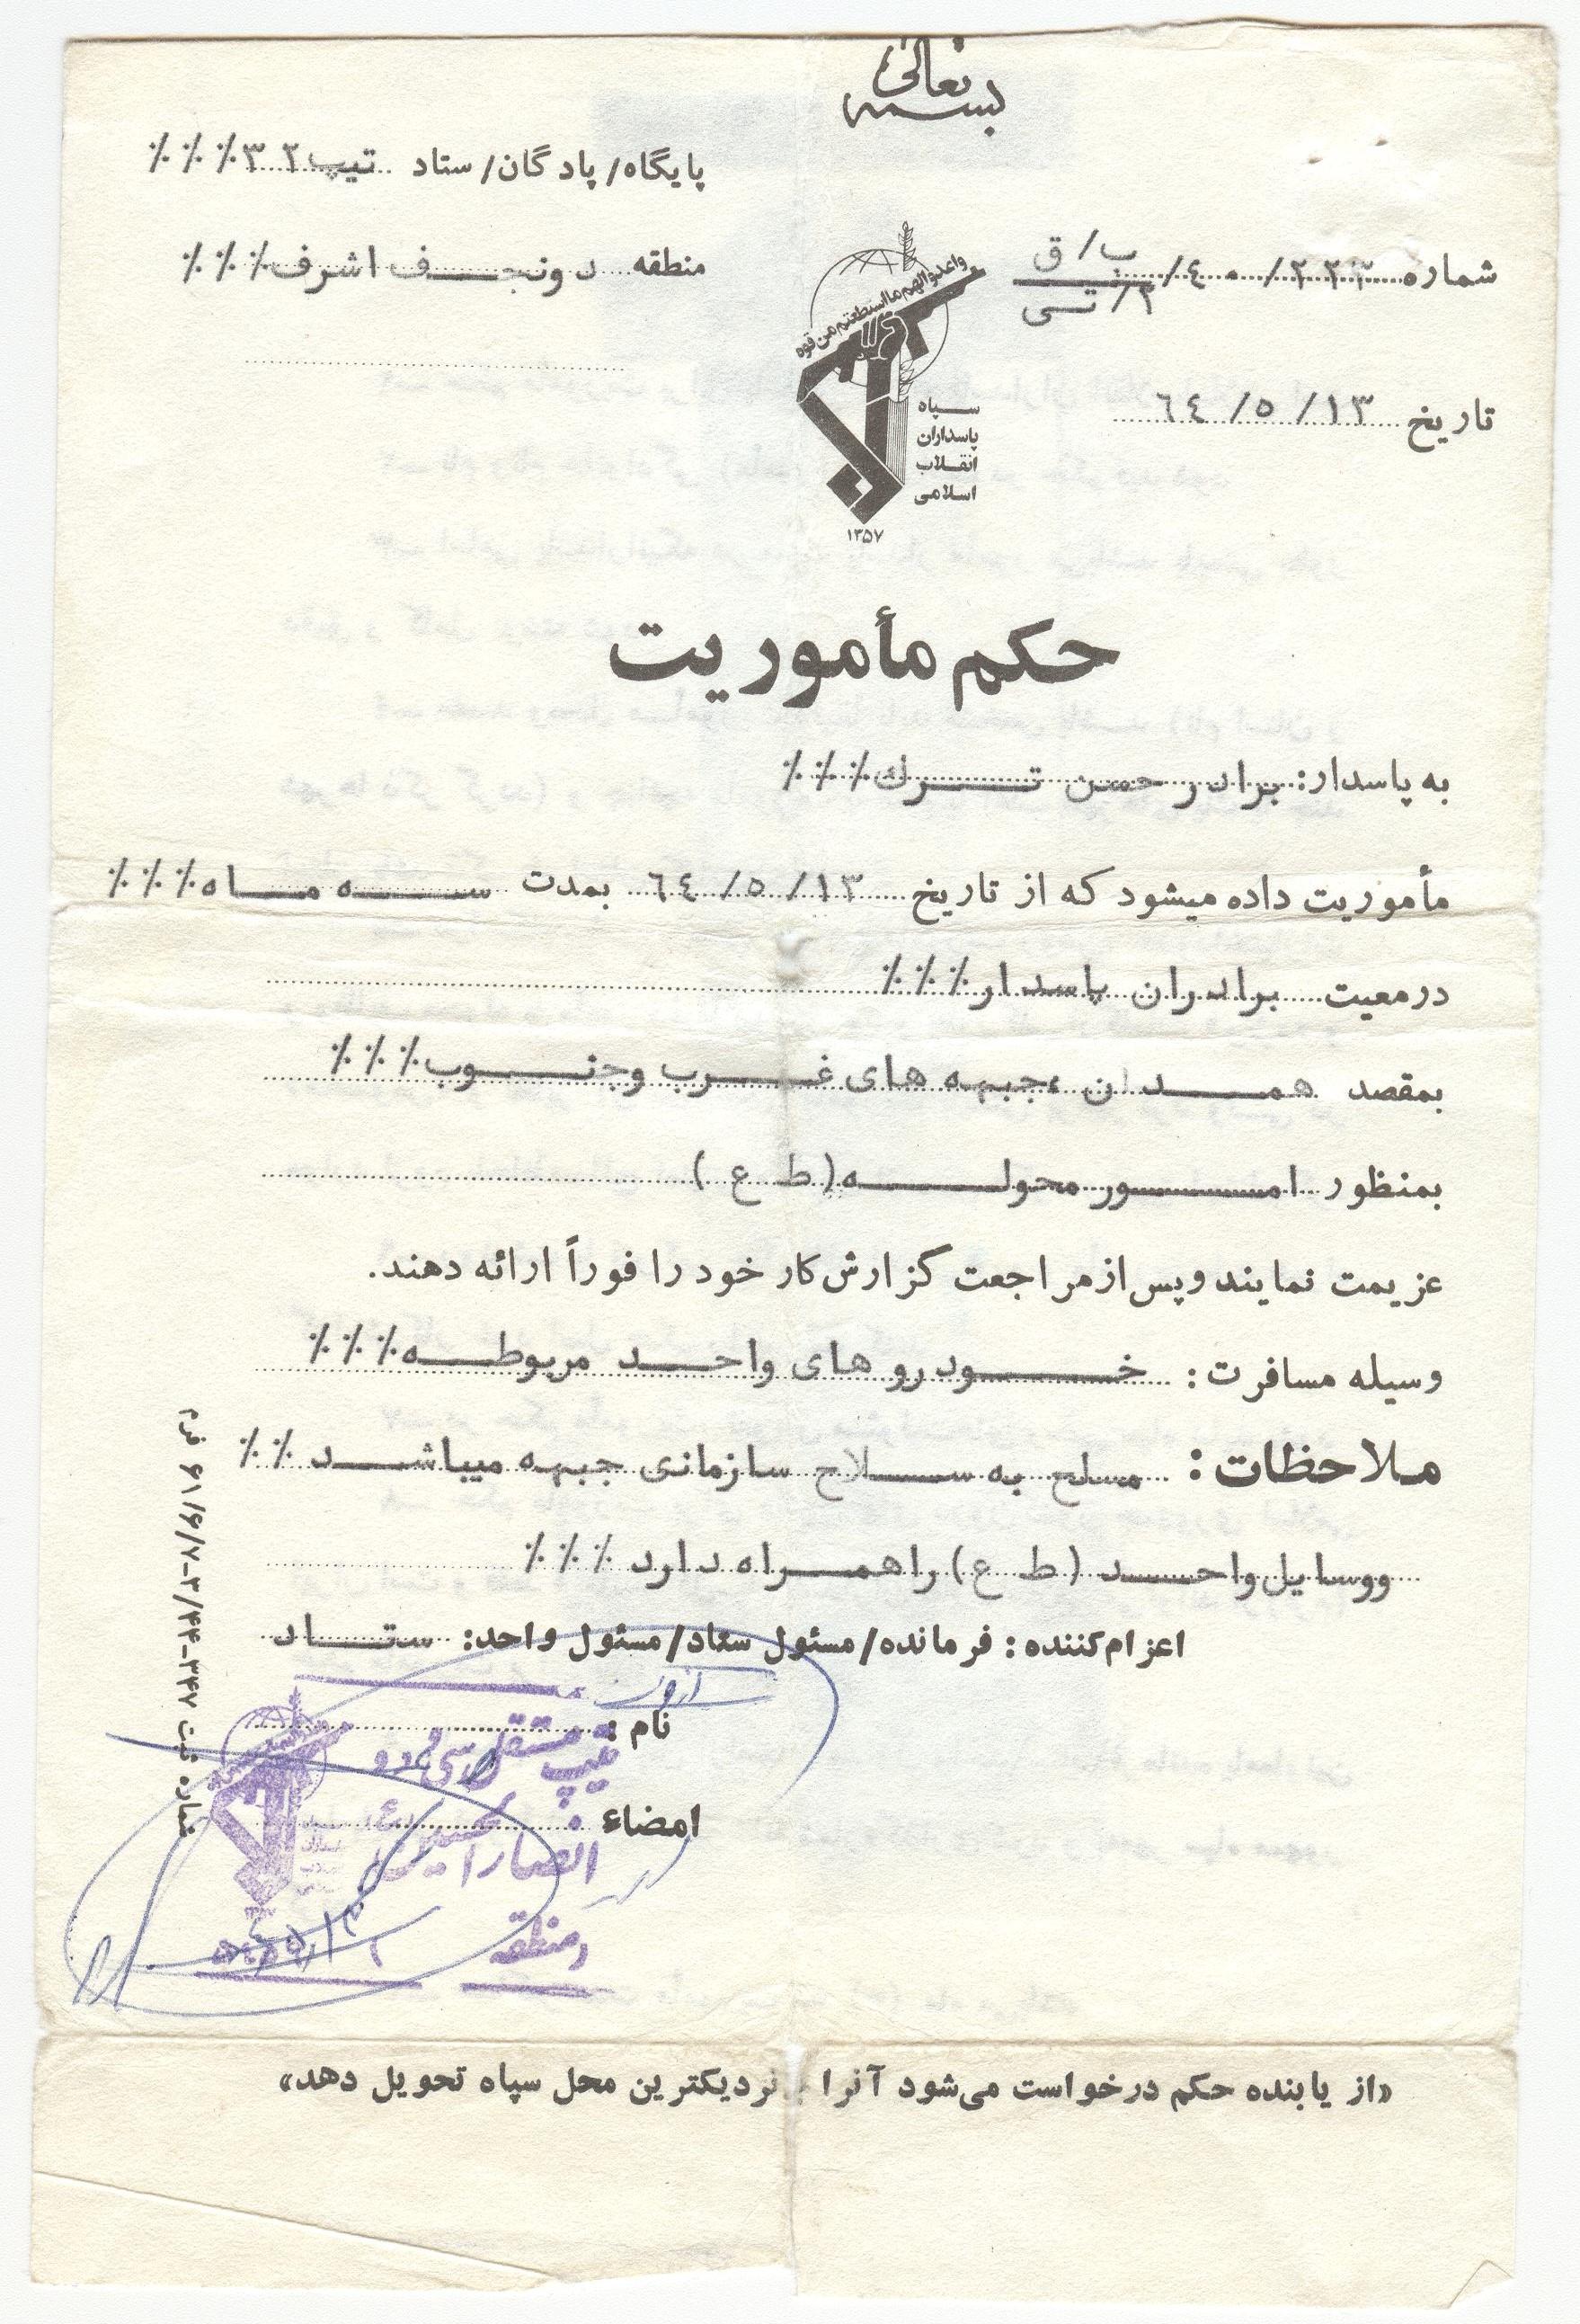 بسمه تعالی
پایگاه/ پادگان/ ستاد تیپ۳۲٪٪٪
منطقه دونجف اشرف٪٪٪
شماره ۴۰/۲۲۳/ب/ق
۲/تی
تاریخ ۶۴/۵/۱۳
واعدوا لهم ما استطعتم من قوه
سپاه
پاسداران
انقلاب
اسلامی
۱۳۵۷
حکم مأموریت
به پاسدار: برادر حسن ترك٪٪٪
مأموریت داده میشود که از تاریخ ۶۴/۵/۱۳ بمدت سه ماه٪٪٪
درمعیت برادران پاسدار٪٪٪
بمقصد همدان ،جبهه های غرب وجنوب٪٪٪
بمنظور امور محوله(ط ع )
عزیمت نمایند وپس از مراجعت گزارش کار خود را فوراً ارائه دهند.
وسیله مسافرت: خودرو های واحد مربوطه٪٪٪
ملاحظات: مسلح به سلاح سازمانی جبهه میباشد ٪٪
ووسایل واحد (ط ع) راهمراه دارد ٪٪٪
اعزام‌کننده: فرمانده/مسئول ستاد/مسئول واحد: ستاد
نام:
تیپ مستقل سی و دو
امضاء
انصارالحسین
منطقه
۶۴/۵/۱۳
فرم ۶۱/۶/۷-۲/۴۴-۳۴۷ شماره ثبت
«از یابنده حکم درخواست می‌شود آنرا نزدیکترین محل سپاه تحویل دهد»